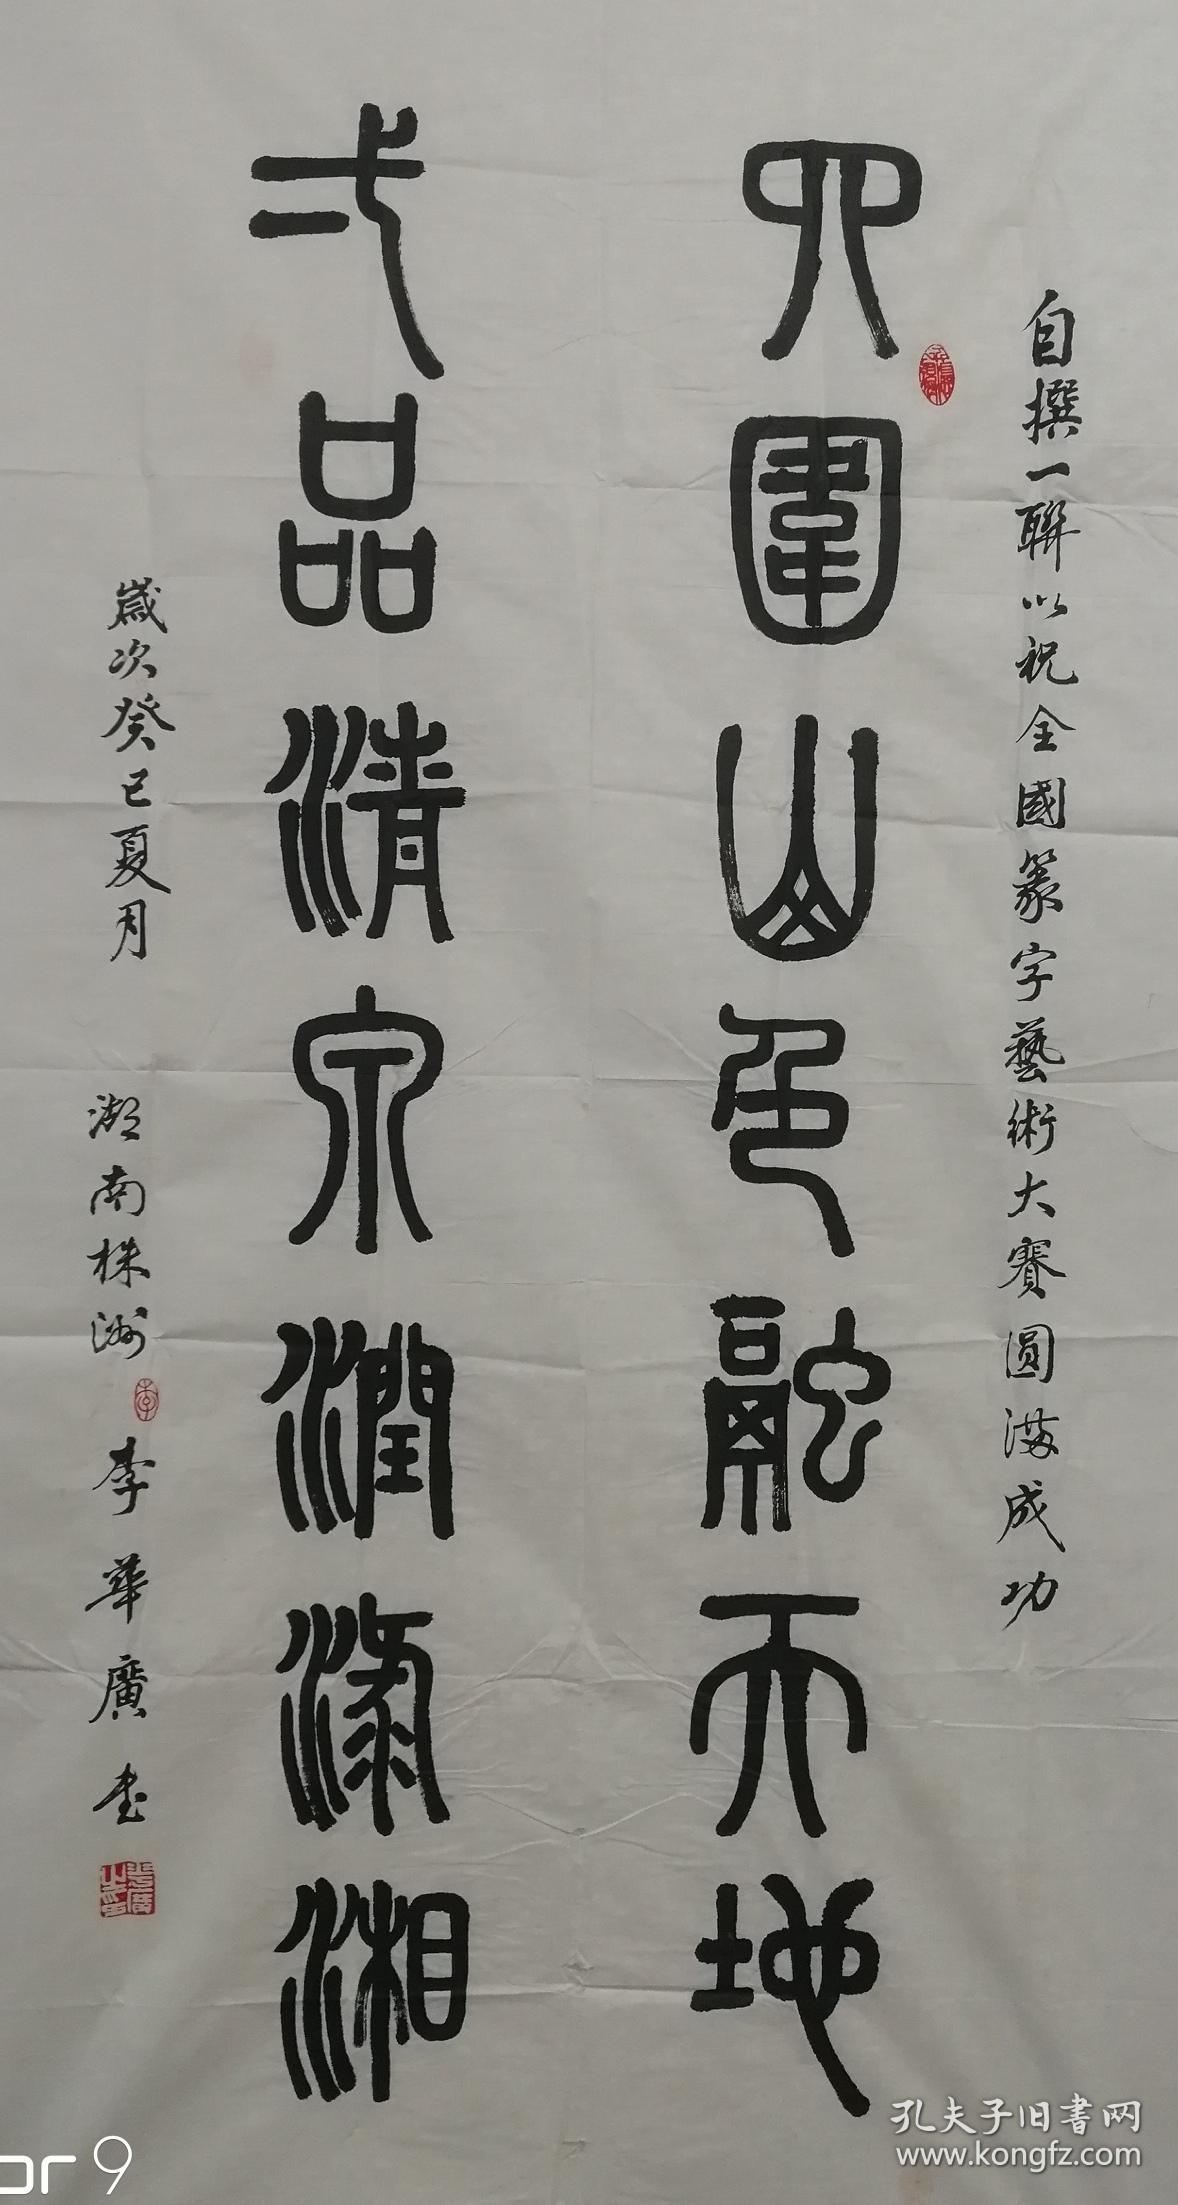 自撰一聯以祝全國篆字藝術大賽圓滿成功
四圍山色融天地
弌品清泉潤瀟湘
歲次癸巳夏月 湖南株洲 李華廣書
李
孔夫子旧书网
www.kongfz.com
or 9